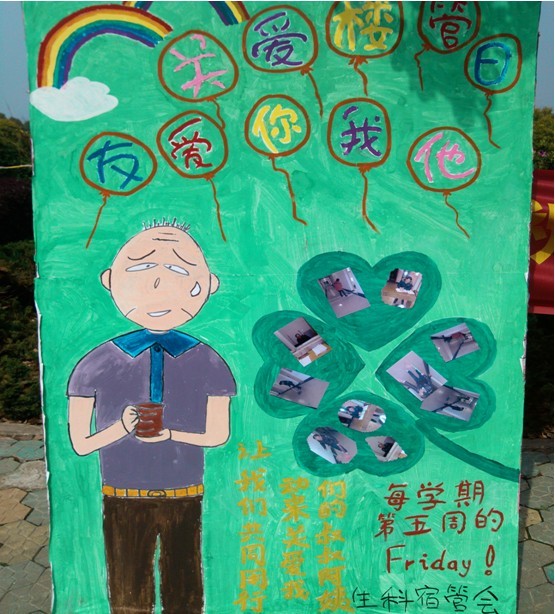 关爱楼管日
友爱你我他
让我们共同同行
动来关爱我
们的叔叔阿姨
每学期
第五周的
Friday！
生科宿管会